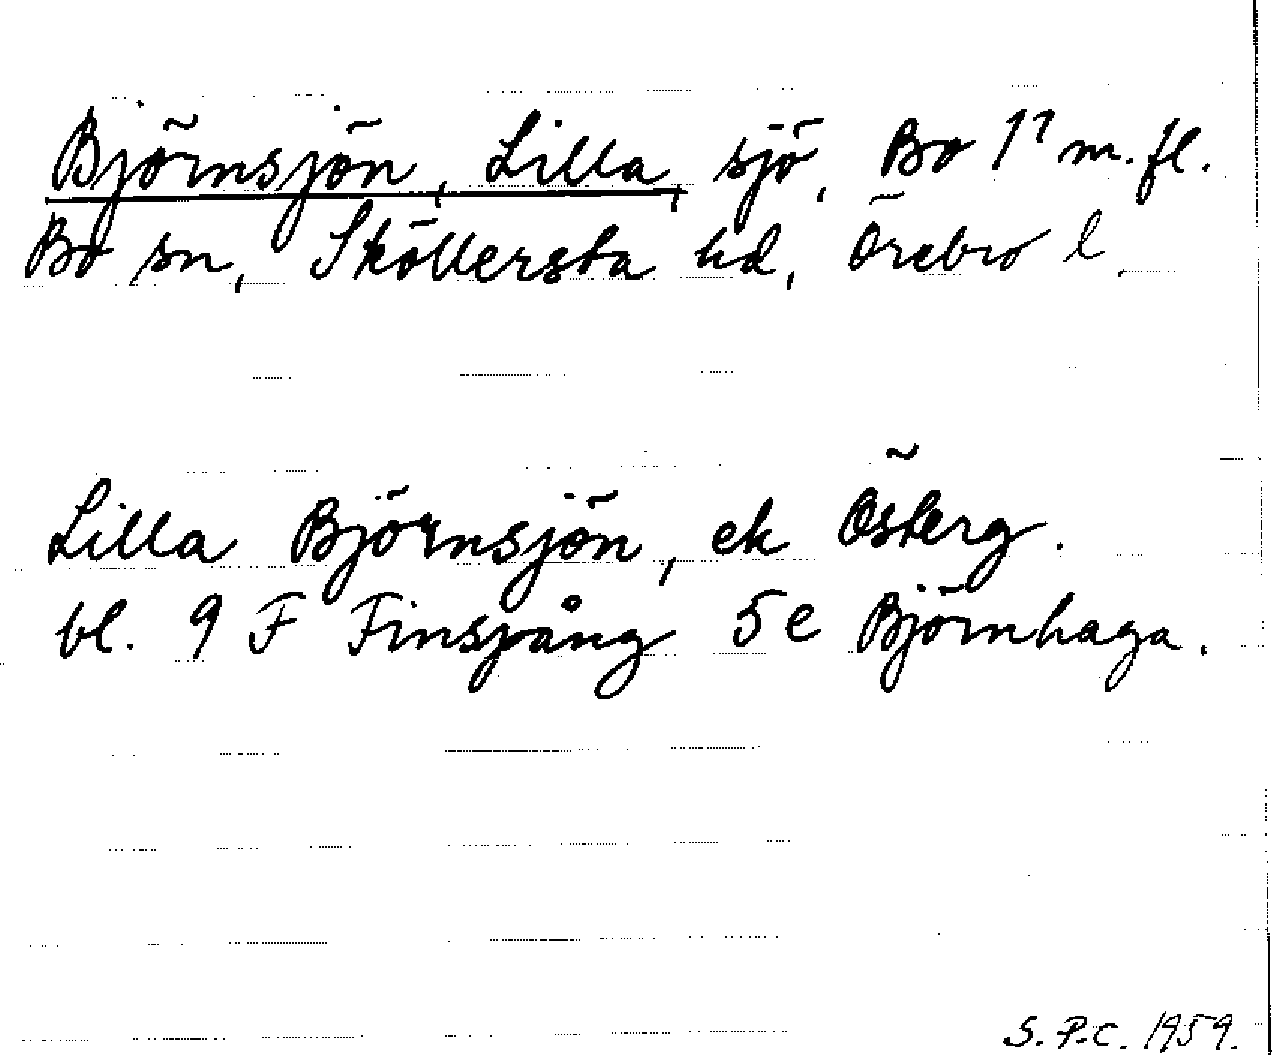 Björnsjön, Lilla, sjö, Bo 1⁷ m.fl.
Bo sn, Sköllersta hd, Örebro l.
Lilla Björnsjön, ek Österg.
bl. 9 F Finspång 5 e Björnhaga.
S.P.C. 1959.